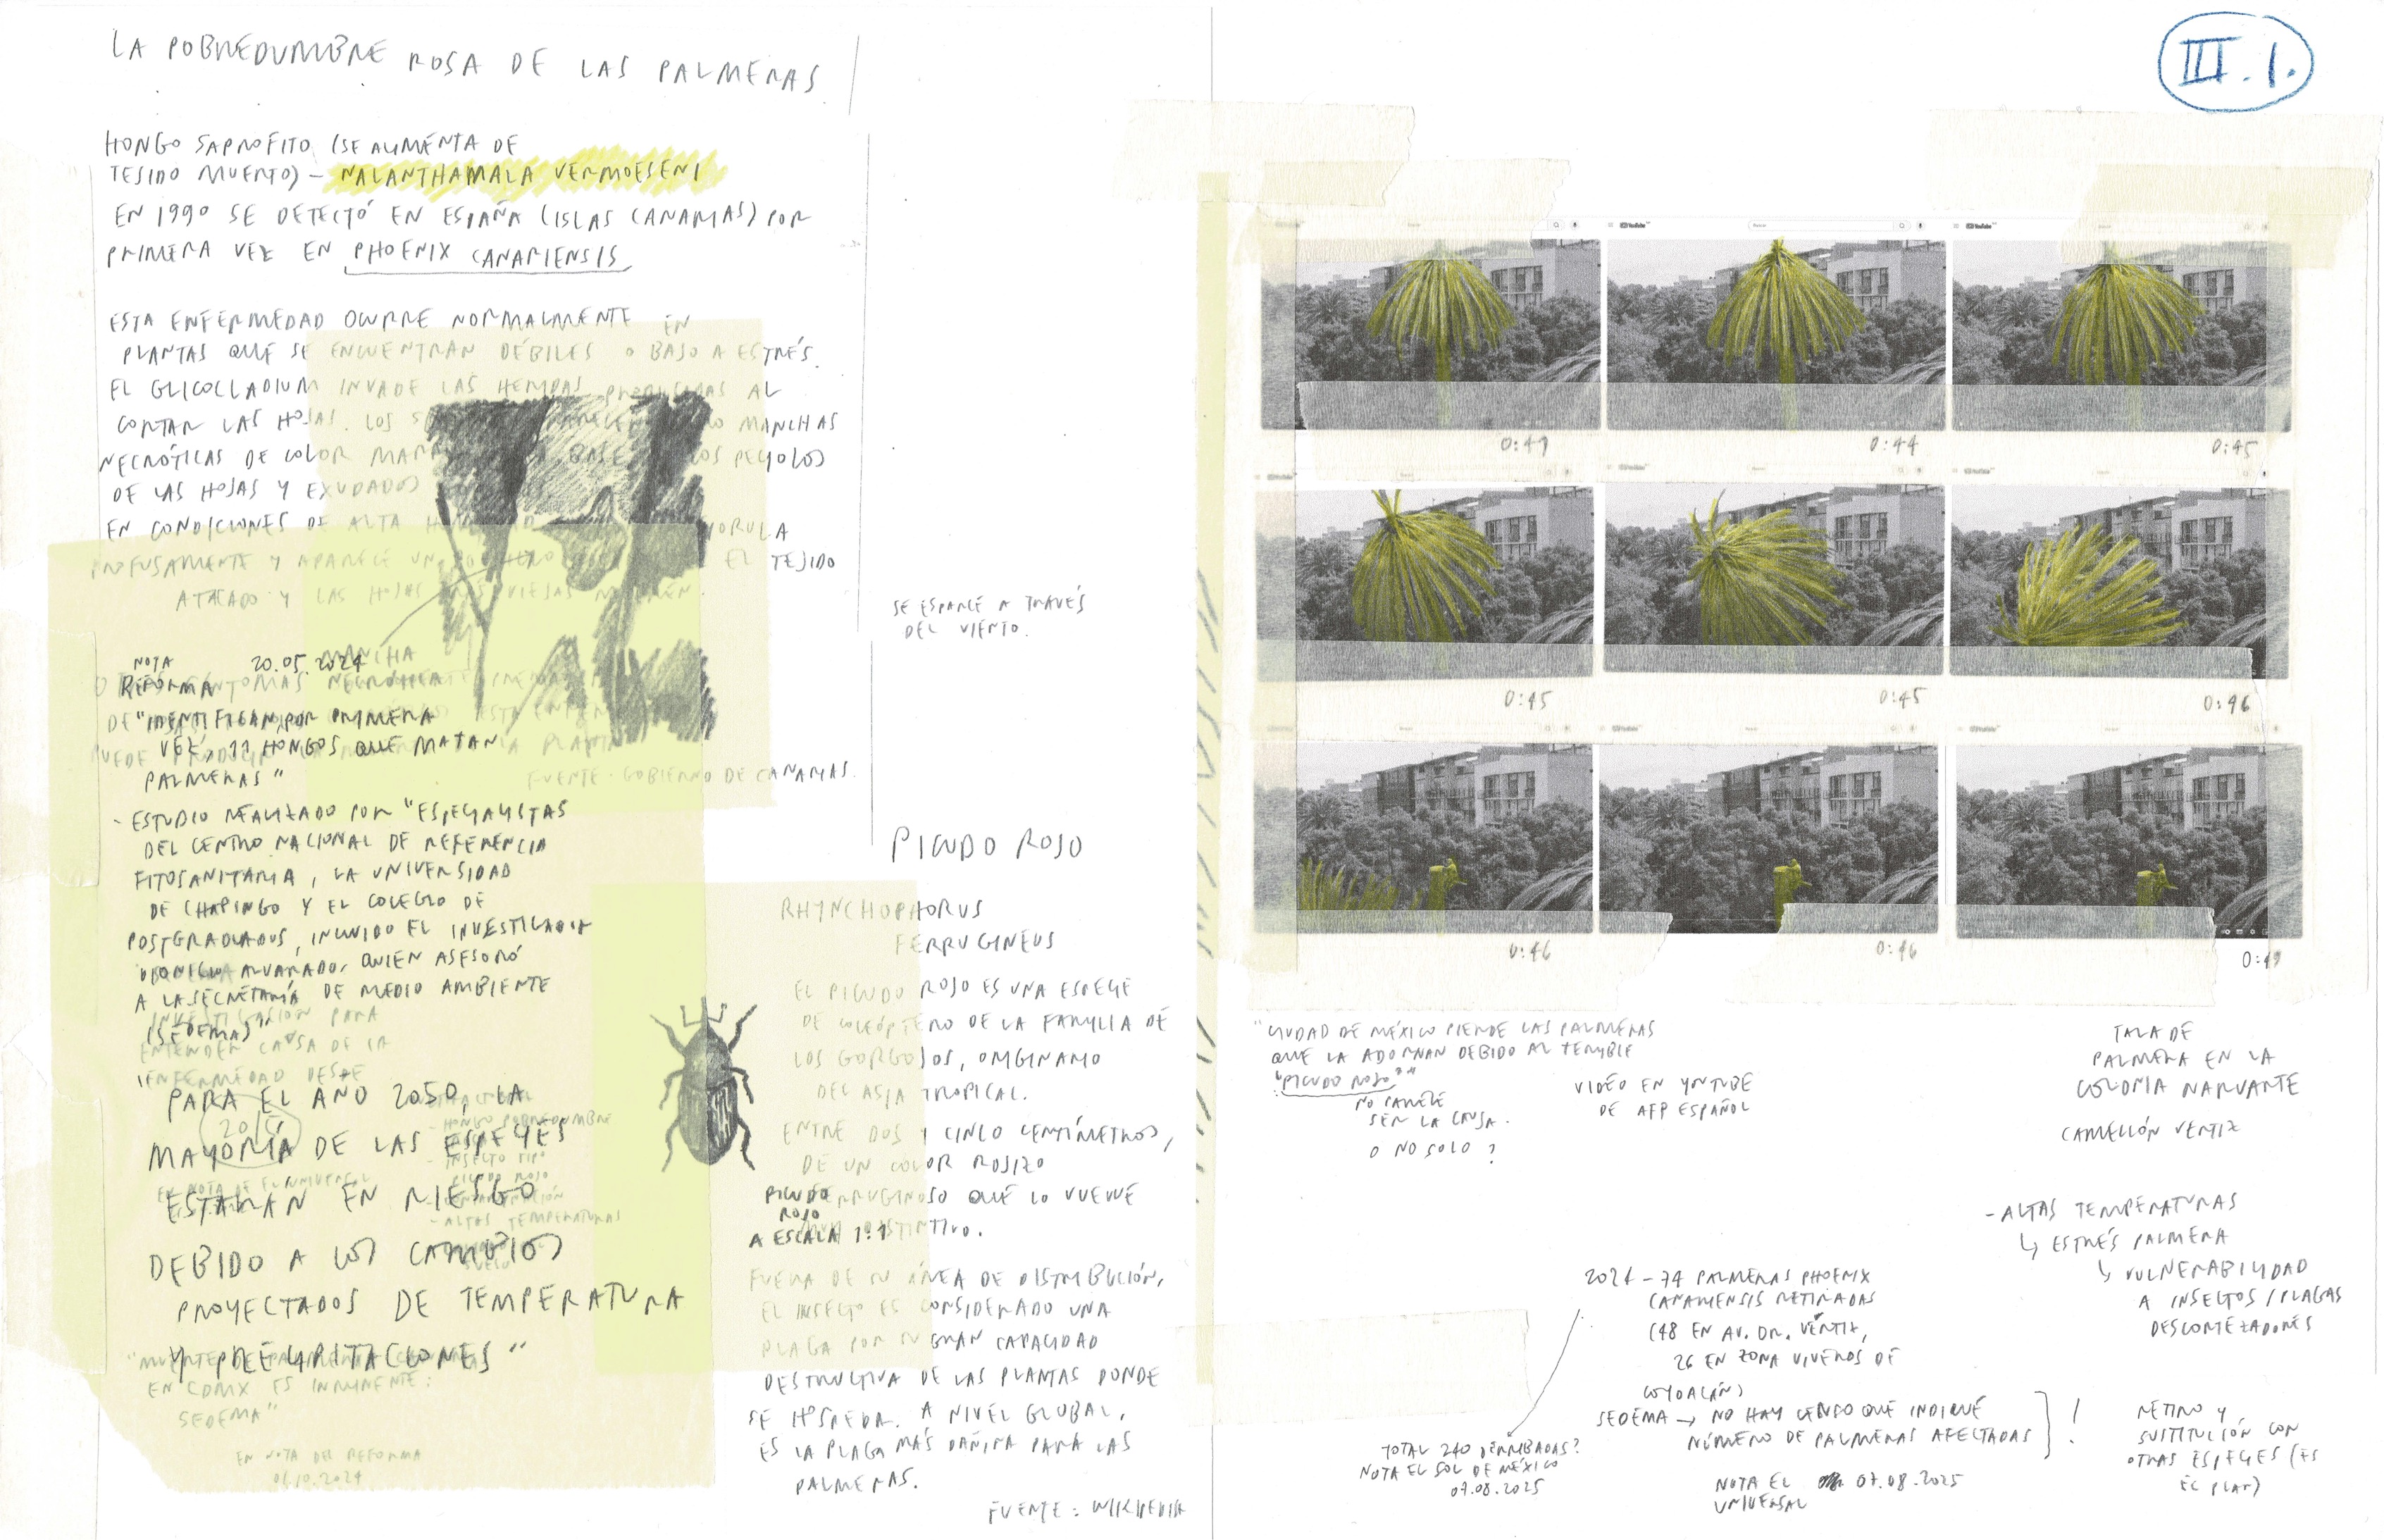 III.1.
LA POBREDUMBRE ROSA DE LAS PALMERAS
HONGO SAPROFITO (SE ALIMENTA DE
TEJIDO MUERTO) – NALANTHAMALA VERMOESENI
EN 1990 SE DETECTÓ EN ESPAÑA (ISLAS CANARIAS) POR
PRIMERA VEZ EN PHOENIX CANARIENSIS
ESTA ENFERMEDAD OCURRE NORMALMENTE EN
PLANTAS QUE SE ENCUENTRAN DÉBILES O BAJO A ESTRÉS.
EL GLICOLLADIUM INVADE LAS HERIDAS PRODUCIDAS AL
CORTAR LAS HOJAS. LOS MANCHAS
NECRÓTICAS DE COLOR BASE PECIOLOS
DE LAS HOJAS Y EXUDADOS
EN CONDICIONES DE ALTA
PROFUSAMENTE Y APARECE UN EL TEJIDO
ATACADO Y LAS HOJAS MÁS VIEJAS MUEREN.
MANCHA
NECRÓTICA
FUENTE: GOBIERNO DE CANARIAS.
SE ESPARCE A TRAVÉS
DEL VIENTO.
NOTA 20.05.2024
REFORMA
"IDENTIFICAN POR PRIMERA
VEZ, 11 HONGOS QUE MATAN
PALMERAS"
- ESTUDIO REALIZADO POR "ESPECIALISTAS
DEL CENTRO NACIONAL DE REFERENCIA
FITOSANITARIA, LA UNIVERSIDAD
DE CHAPINGO Y EL COLEGIO DE
POSTGRADUADOS, INCLUIDO EL INVESTIGADOR
DIONICIO ALVARADO, QUIEN ASESORÓ
A LA SECRETARÍA DE MEDIO AMBIENTE
(SEDEMA)"
INVESTIGACIÓN PARA
ENTENDER CAUSA DE LA
ENFERMEDAD DESDE
"PARA EL AÑO 2050, LA
MAYORÍA DE LAS ESPECIES
ESTARÁN EN RIESGO
DEBIDO A LOS CAMBIOS
PROYECTADOS DE TEMPERATURA
Y PRECIPITACIONES"
- HONGO POBREDUMBRE
- INSECTO TIPO
PICUDO ROJO
- ALTAS TEMPERATURAS
SUELO
EN NOTA DE EL UNIVERSAL
"MUERTE DE PALMERAS
EN CDMX ES INMINENTE:
SEDEMA"
EN NOTA DEL REFORMA
01.10.2024
PICUDO ROJO
RHYNCHOPHORUS
FERRUGINEUS
EL PICUDO ROJO ES UNA ESPECIE
DE COLEÓPTERO DE LA FAMILIA DE
LOS GORGOJOS, ORIGINARIO
DEL ASIA TROPICAL.
ENTRE DOS Y CINCO CENTÍMETROS,
DE UN COLOR ROJIZO
FERRUGINOSO QUE LO VUELVE
MUY DISTINTIVO.
PICUDO
ROJO
A ESCALA 1:1
FUERA DE SU ÁREA DE DISTRIBUCIÓN,
EL INSECTO ES CONSIDERADO UNA
PLAGA POR SU GRAN CAPACIDAD
DESTRUCTIVA DE LAS PLANTAS DONDE
SE HOSPEDA. A NIVEL GLOBAL,
ES LA PLAGA MÁS DAÑINA PARA LAS
PALMERAS.
FUENTE: WIKIPEDIA
YouTube
Buscar
YouTube
YouTube
0:44
0:45
0:45
0:45
0:46
0:46
0:46
"CIUDAD DE MÉXICO PIERDE LAS PALMERAS
QUE LA ADORNAN DEBIDO AL TEMIBLE
"PICUDO ROJO""
NO PARECE
SER LA CAUSA.
O NO SOLO?
VIDEO EN YOUTUBE
DE AFP ESPAÑOL
TALA DE
PALMERA EN LA
COLONIA NARVARTE
CAMELLÓN VERTIZ
- ALTAS TEMPERATURAS
↳ ESTRÉS PALMERA
↳ VULNERABILIDAD
A INSECTOS / PLAGAS
DESCORTEZADORES
74 PALMERAS PHOENIX
CANARIENSIS RETIRADAS
(48 EN AV. DR. VÉRTIZ,
26 EN ZONA VIVEROS DE
COYOACÁN)
SEDEMA → NO HAY CENSO QUE INDIQUE
NÚMERO DE PALMERAS AFECTADAS
!
TOTAL 240 DERRIBADAS?
NOTA EL SOL DE MÉXICO
07.08.2025
NOTA EL 07.08.2025
UNIVERSAL
RETIRO Y
SUSTITUCIÓN CON
OTRAS ESPECIES (ES
EL PLAN)